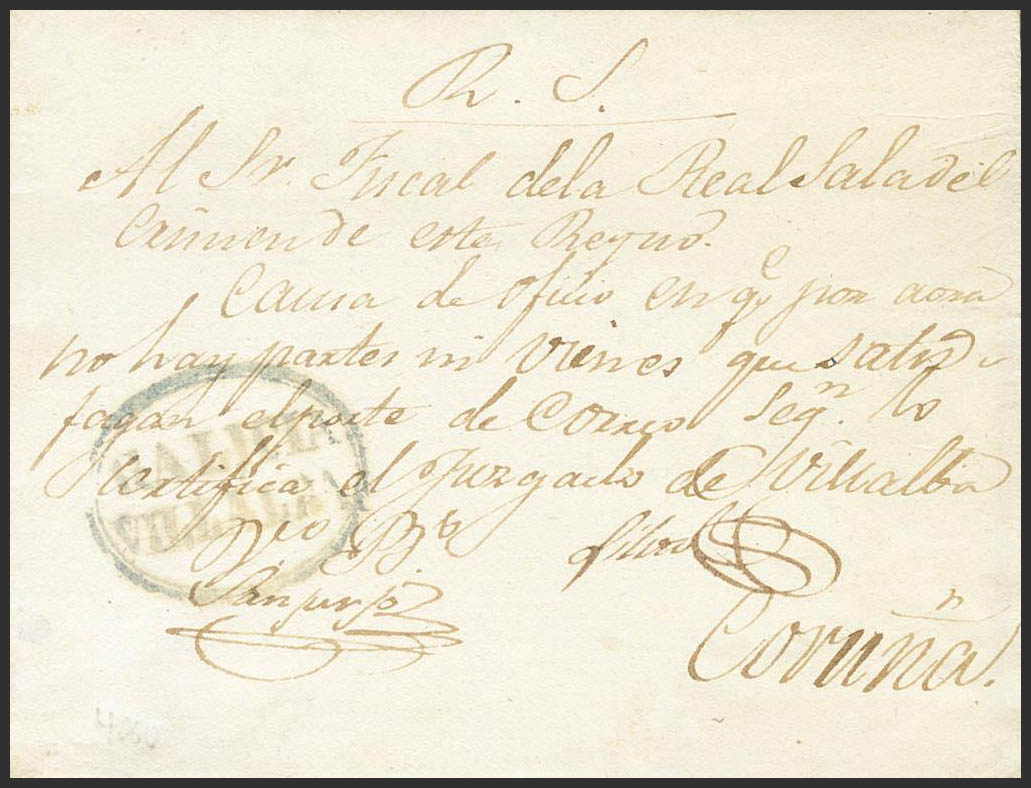 R. S.
Al Sr. Fiscal dela Real Sala del
Crimen de este Reyno.
Causa de oficio en qe por aora
no hay partes ni vienes que satis
fagan el porte de Correo Segn lo
certifica el Juzgado de Villalba
GALICIA
VILLALBA
Sanjurjo
Coruña.